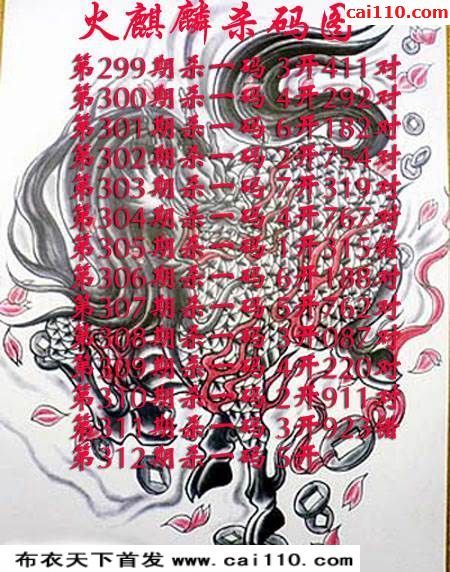 cai110.com
火麒麟杀码图
第299期杀一码 3开411对
第300期杀一码 4开292对
第301期杀一码 6开182对
第302期杀一码 2开754对
第303期杀一码 7开319对
第304期杀一码 4开767对
第305期杀一码 1开315错
第306期杀一码 6开188对
第307期杀一码 开762对
第308期杀一码 开087对
第309期杀一码 4开220对
第310期杀一码 2开911对
第311期杀一码 3开923错
第312期杀一码 5开
布衣天下首发 www.cai110.com